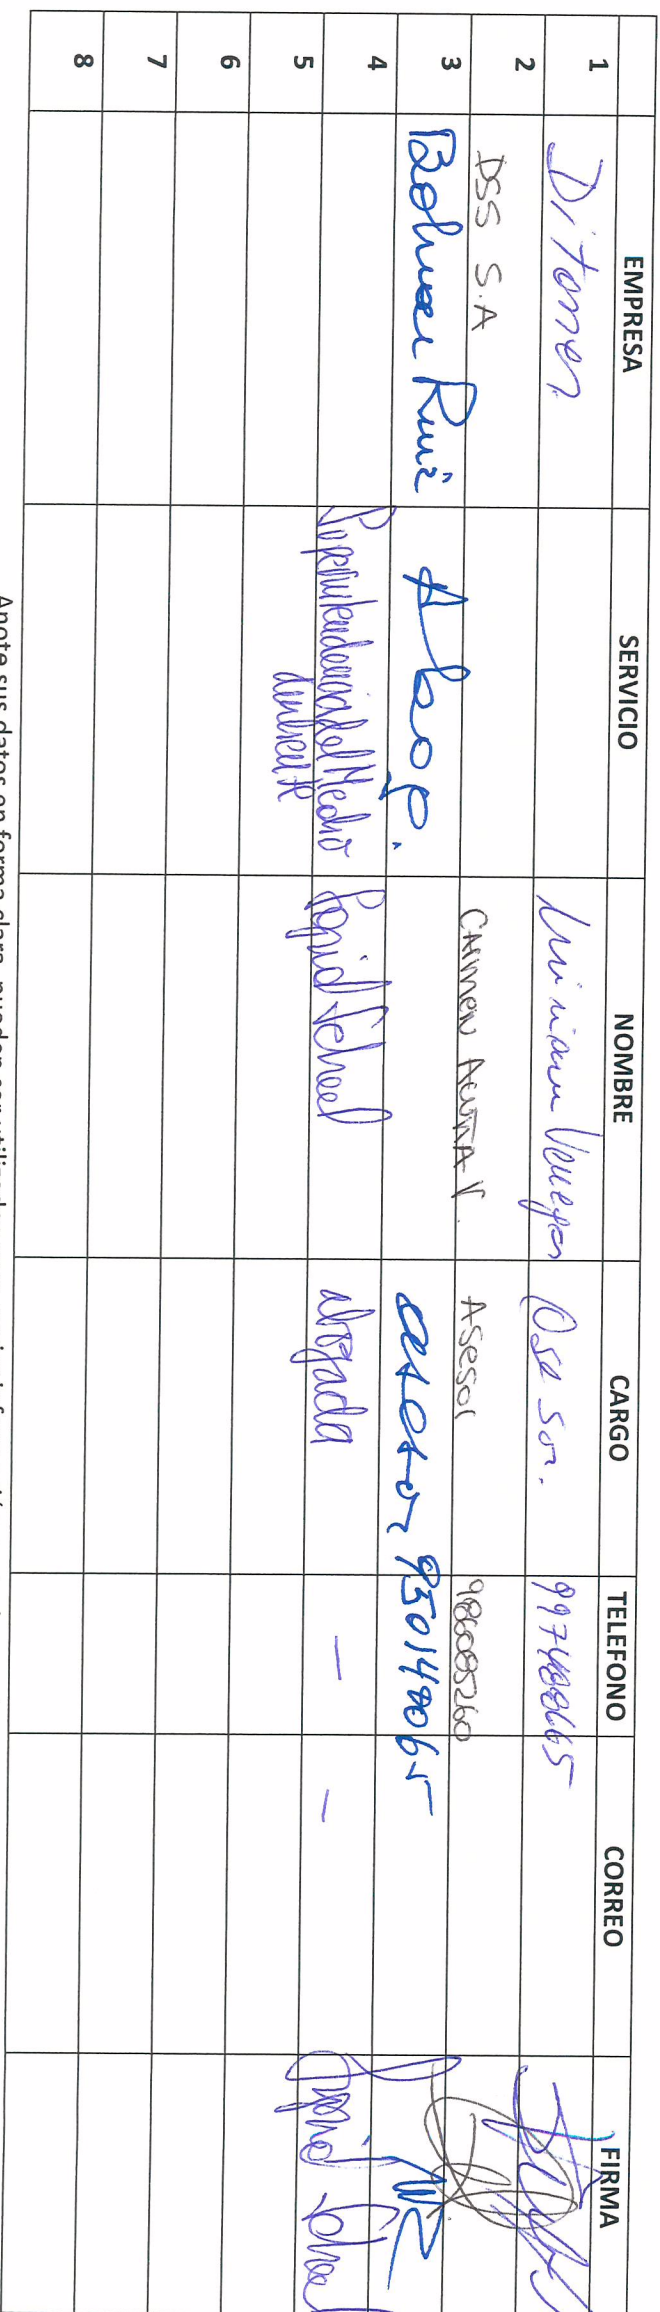 EMPRESA SERVICIO NOMBRE CARGO TELEFONO CORREO FIRMA
1 Ditorres Viviana Venegas Asesor. 997488665
2 DSS S.A CARMEN ACUÑA V. Asesor 986085260
3 Abog. asesor 950148065
4 Superintendencia del Medio Ingrid Scheel abogada — —
ambiente
5
6
7
8
Anote sus datos en forma clara, pueden ser